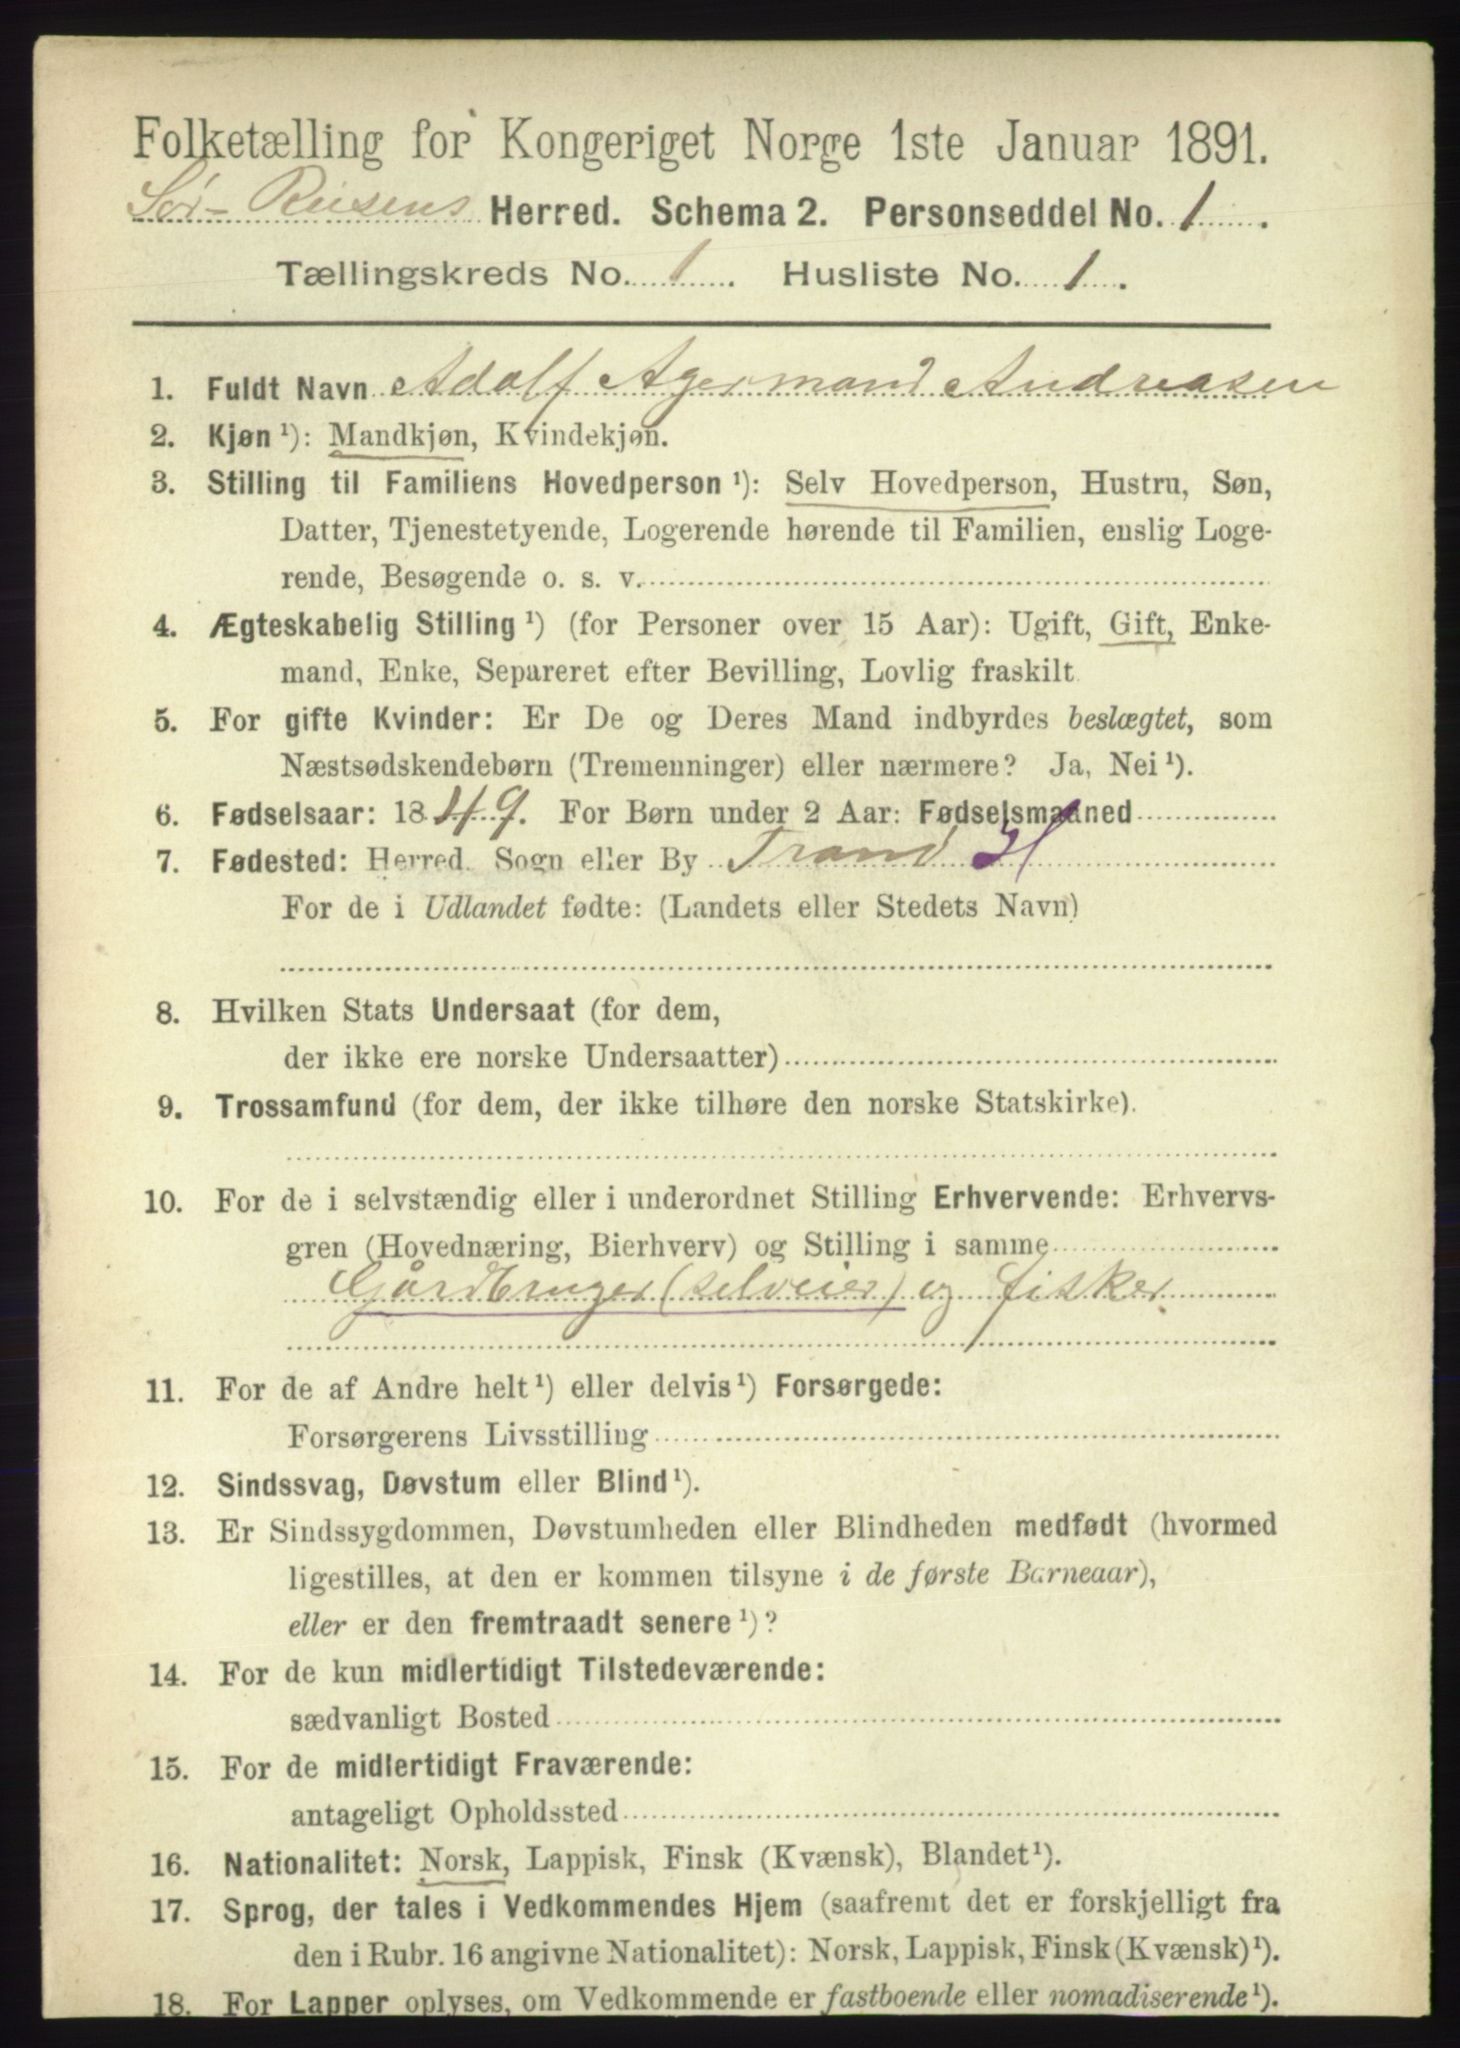 Folketælling for Kongeriget Norge 1ste Januar 1891.
Sør-Reisens Herred. Schema 2. Personseddel No. 1.
Tællingskreds No. 1. Husliste No. 1.
1. Fuldt Navn Adolf Agermand Andreasen
2. Kjøn ¹): Mandkjøn, Kvindekjøn.
3. Stilling til Familiens Hovedperson ¹): Selv Hovedperson, Hustru, Søn,
Datter, Tjenestetyende, Logerende hørende til Familien, enslig Loge-
rende, Besøgende o. s. v.
4. Ægteskabelig Stilling ¹) (for Personer over 15 Aar): Ugift, Gift, Enke-
mand, Enke, Separeret efter Bevilling, Lovlig fraskilt
5. For gifte Kvinder: Er De og Deres Mand indbyrdes beslægtet, som
Næstsødskendebørn (Tremenninger) eller nærmere? Ja, Nei ¹).
6. Fødselsaar: 1849. For Børn under 2 Aar: Fødselsmaaned
7. Fødested: Herred. Sogn eller By Trand H
For de i Udlandet fødte: (Landets eller Stedets Navn)
8. Hvilken Stats Undersaat (for dem,
der ikke ere norske Undersaatter)
9. Trossamfund (for dem, der ikke tilhøre den norske Statskirke).
10. For de i selvstændig eller i underordnet Stilling Erhvervende: Erhvervs-
gren (Hovednæring, Bierhverv) og Stilling i samme
Gårdbruger (selveier) og fisker
11. For de af Andre helt ¹) eller delvis ¹) Forsørgede:
Forsørgerens Livsstilling
12. Sindssvag, Døvstum eller Blind ¹).
13. Er Sindssygdommen, Døvstumheden eller Blindheden medfødt (hvormed
ligestilles, at den er kommen tilsyne i de første Barneaar),
eller er den fremtraadt senere ¹)?
14. For de kun midlertidigt Tilstedeværende:
sædvanligt Bosted
15. For de midlertidigt Fraværende:
antageligt Opholdssted
16. Nationalitet: Norsk, Lappisk, Finsk (Kvænsk), Blandet ¹).
17. Sprog, der tales i Vedkommendes Hjem (saafremt det er forskjelligt fra
den i Rubr. 16 angivne Nationalitet): Norsk, Lappisk, Finsk (Kvænsk) ¹).
18. For Lapper oplyses, om Vedkommende er fastboende eller nomadiserende ¹).